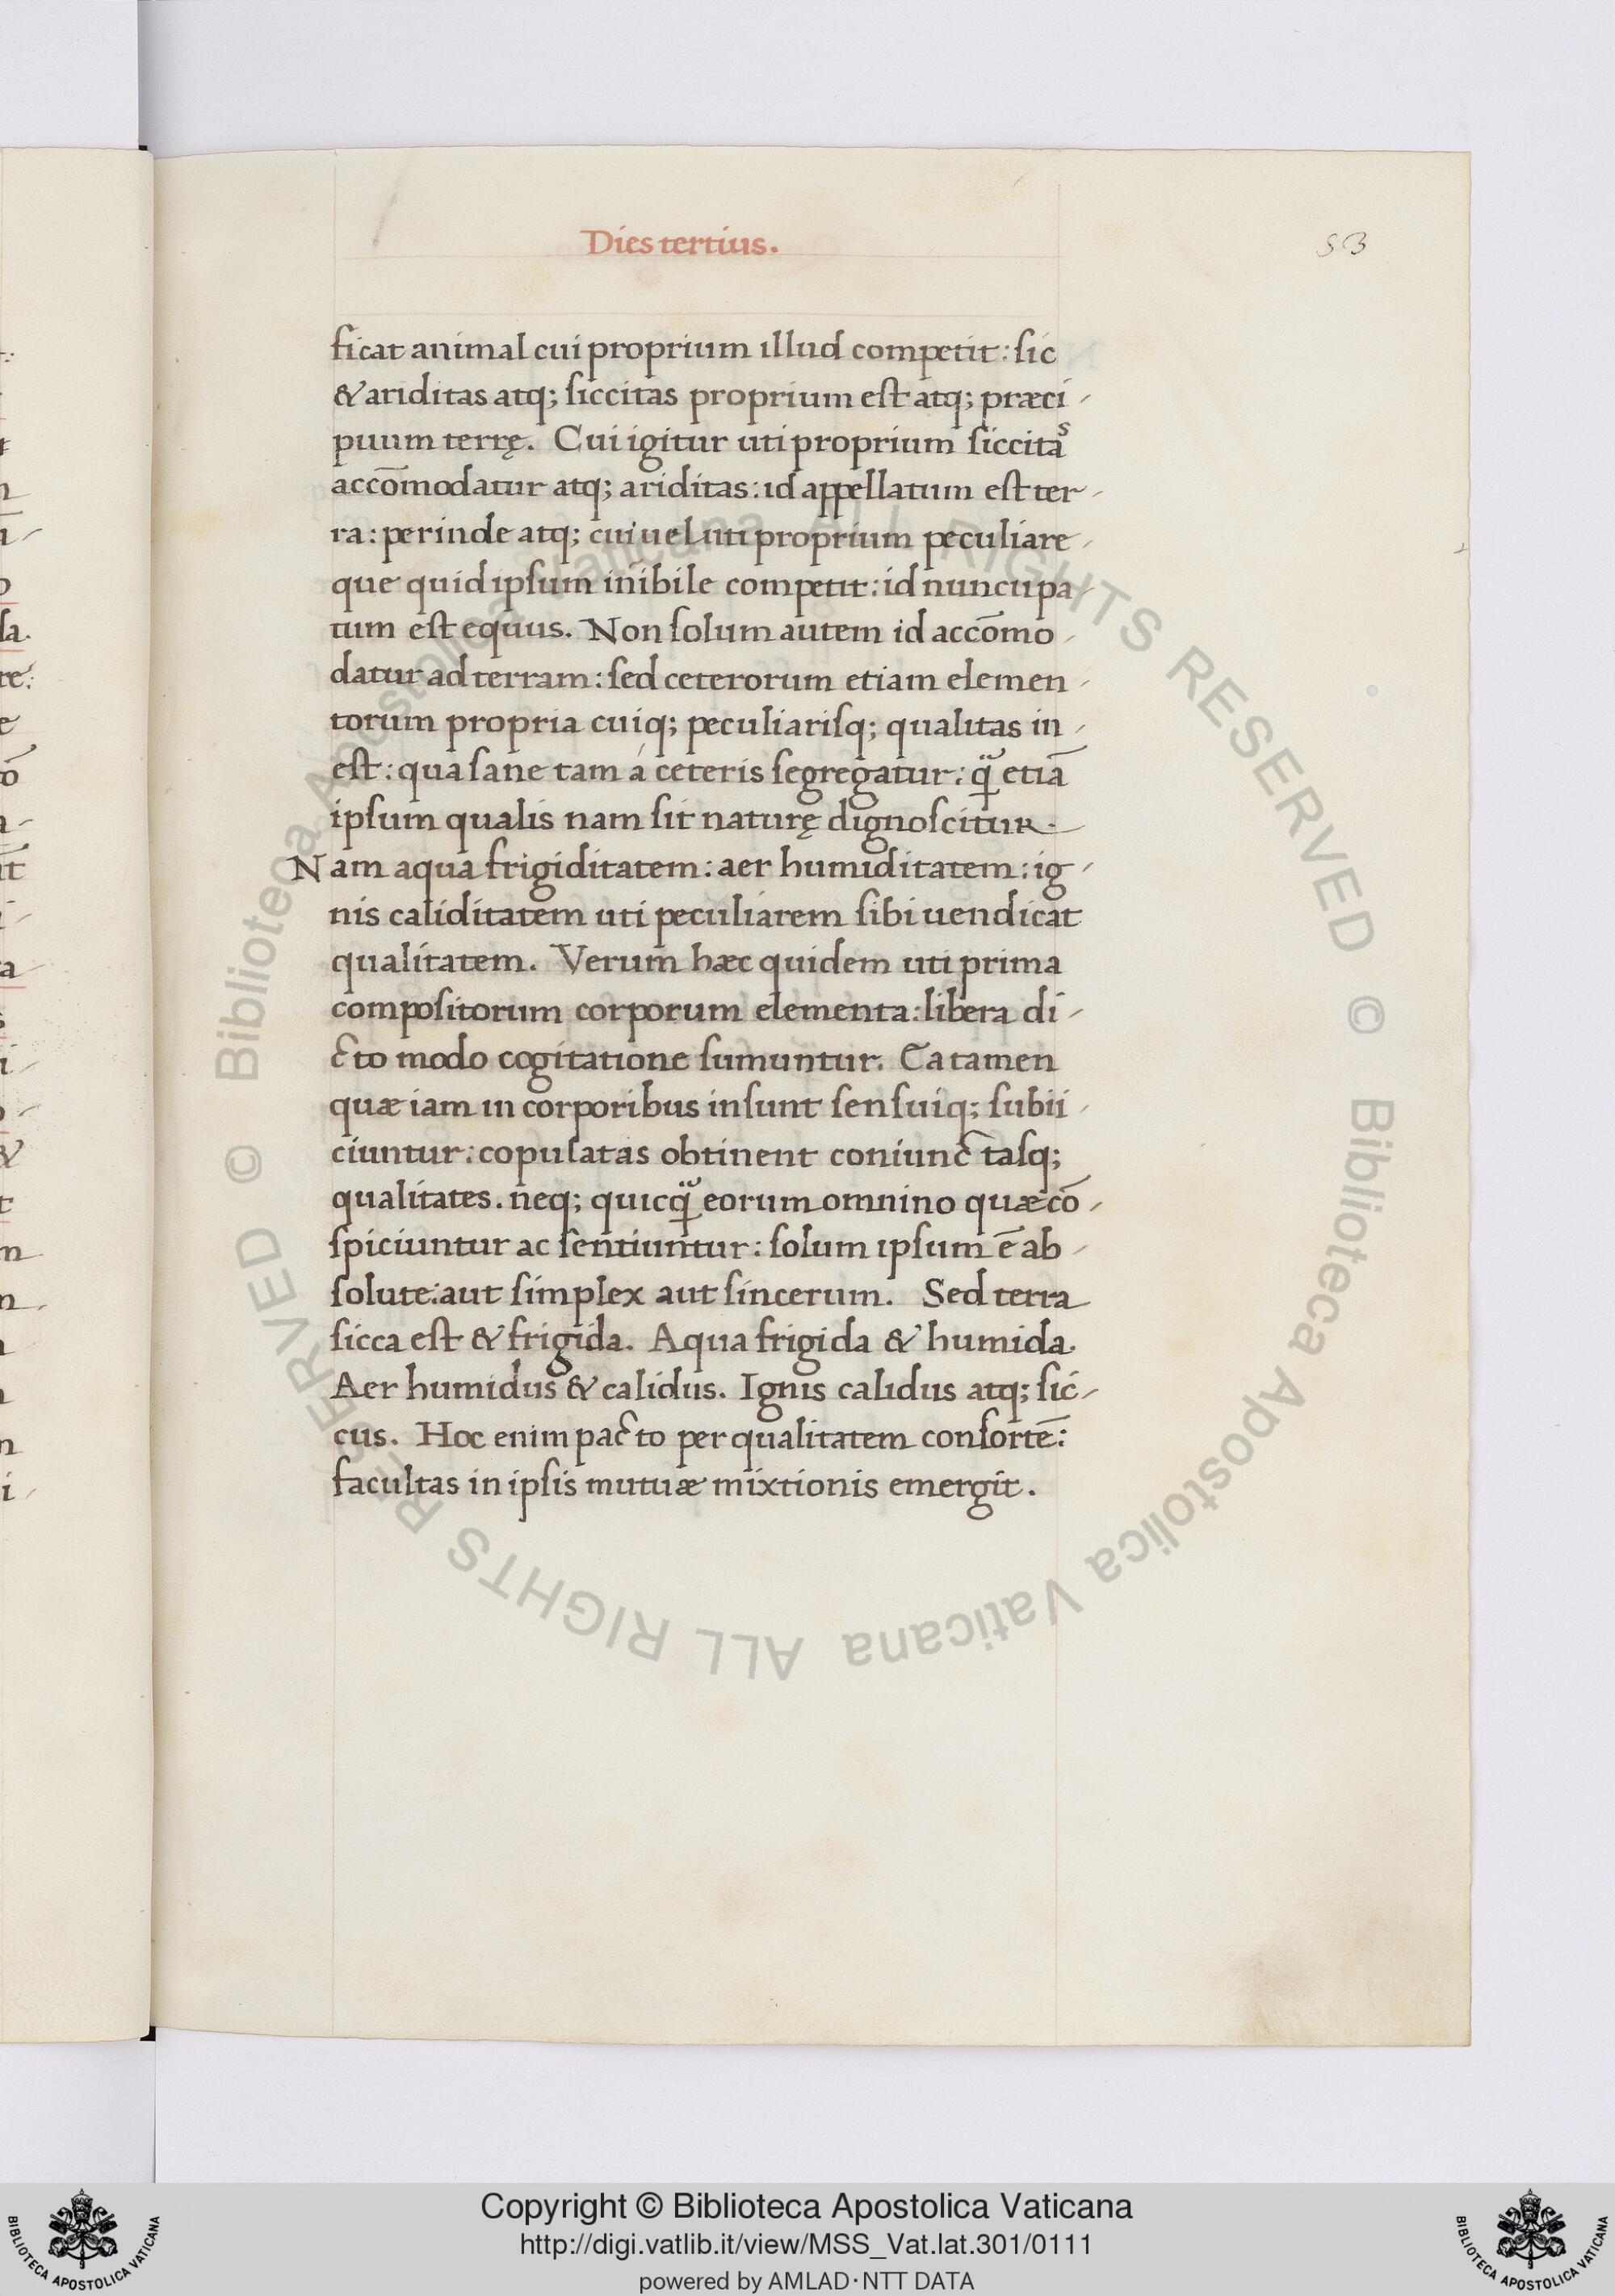 Dies tertius.
53
ficat animal cui proprium illud competit: sic
& ariditas atq; siccitas proprium est atq; præci-
puum terrę. Cui igitur uti proprium siccitas
accõmodatur atq; ariditas: id appellatum est ter-
ra: perinde atq; cui uel uti proprium peculiare-
que quid ipsum inñibile competit: id nuncupa-
tum est equus. Non solum autem id accõmo-
datur ad terram: sed ceterorum etiam elemen-
torum propria cuiq; peculiarisq; qualitas in-
est: qua sane tam á ceteris segregatur: q̃ etiã
ipsum qualis nam sit naturę dignoscitur.
Nam aqua frigiditatem: aer humiditatem: ig-
nis caliditatem uti peculiarem sibi uendicat
qualitatem. Verum hæc quidem uti prima
compositorum corporum elementa: libera di-
cto modo cogitatione sumuntur. Ea tamen
quæ iam in corporibus insunt sensuiq; subii-
ciuntur: copulatas obtinent coniunctasq;
qualitates. neq; quicq̃ eorum omnino quæ cõ-
spiciuntur ac sentiuntur: solum ipsum ẽ ab-
solute: aut simplex aut sincerum. Sed terra
sicca est & frigida. Aqua frigida & humida.
Aer humidus & calidus. Ignis calidus atq; sic-
cus. Hoc enim pacto per qualitatem consortẽ:
facultas in ipsis mutuæ mixtionis emergit.
© Biblioteca Apostolica Vaticana ALL RIGHTS RESERVED © Biblioteca Apostolica Vaticana ALL RIGHTS RESERVED
Copyright © Biblioteca Apostolica Vaticana
http://digi.vatlib.it/view/MSS_Vat.lat.301/0111
powered by AMLAD·NTT DATA
BIBLIOTECA APOSTOLICA VATICANA
BIBLIOTECA APOSTOLICA VATICANA